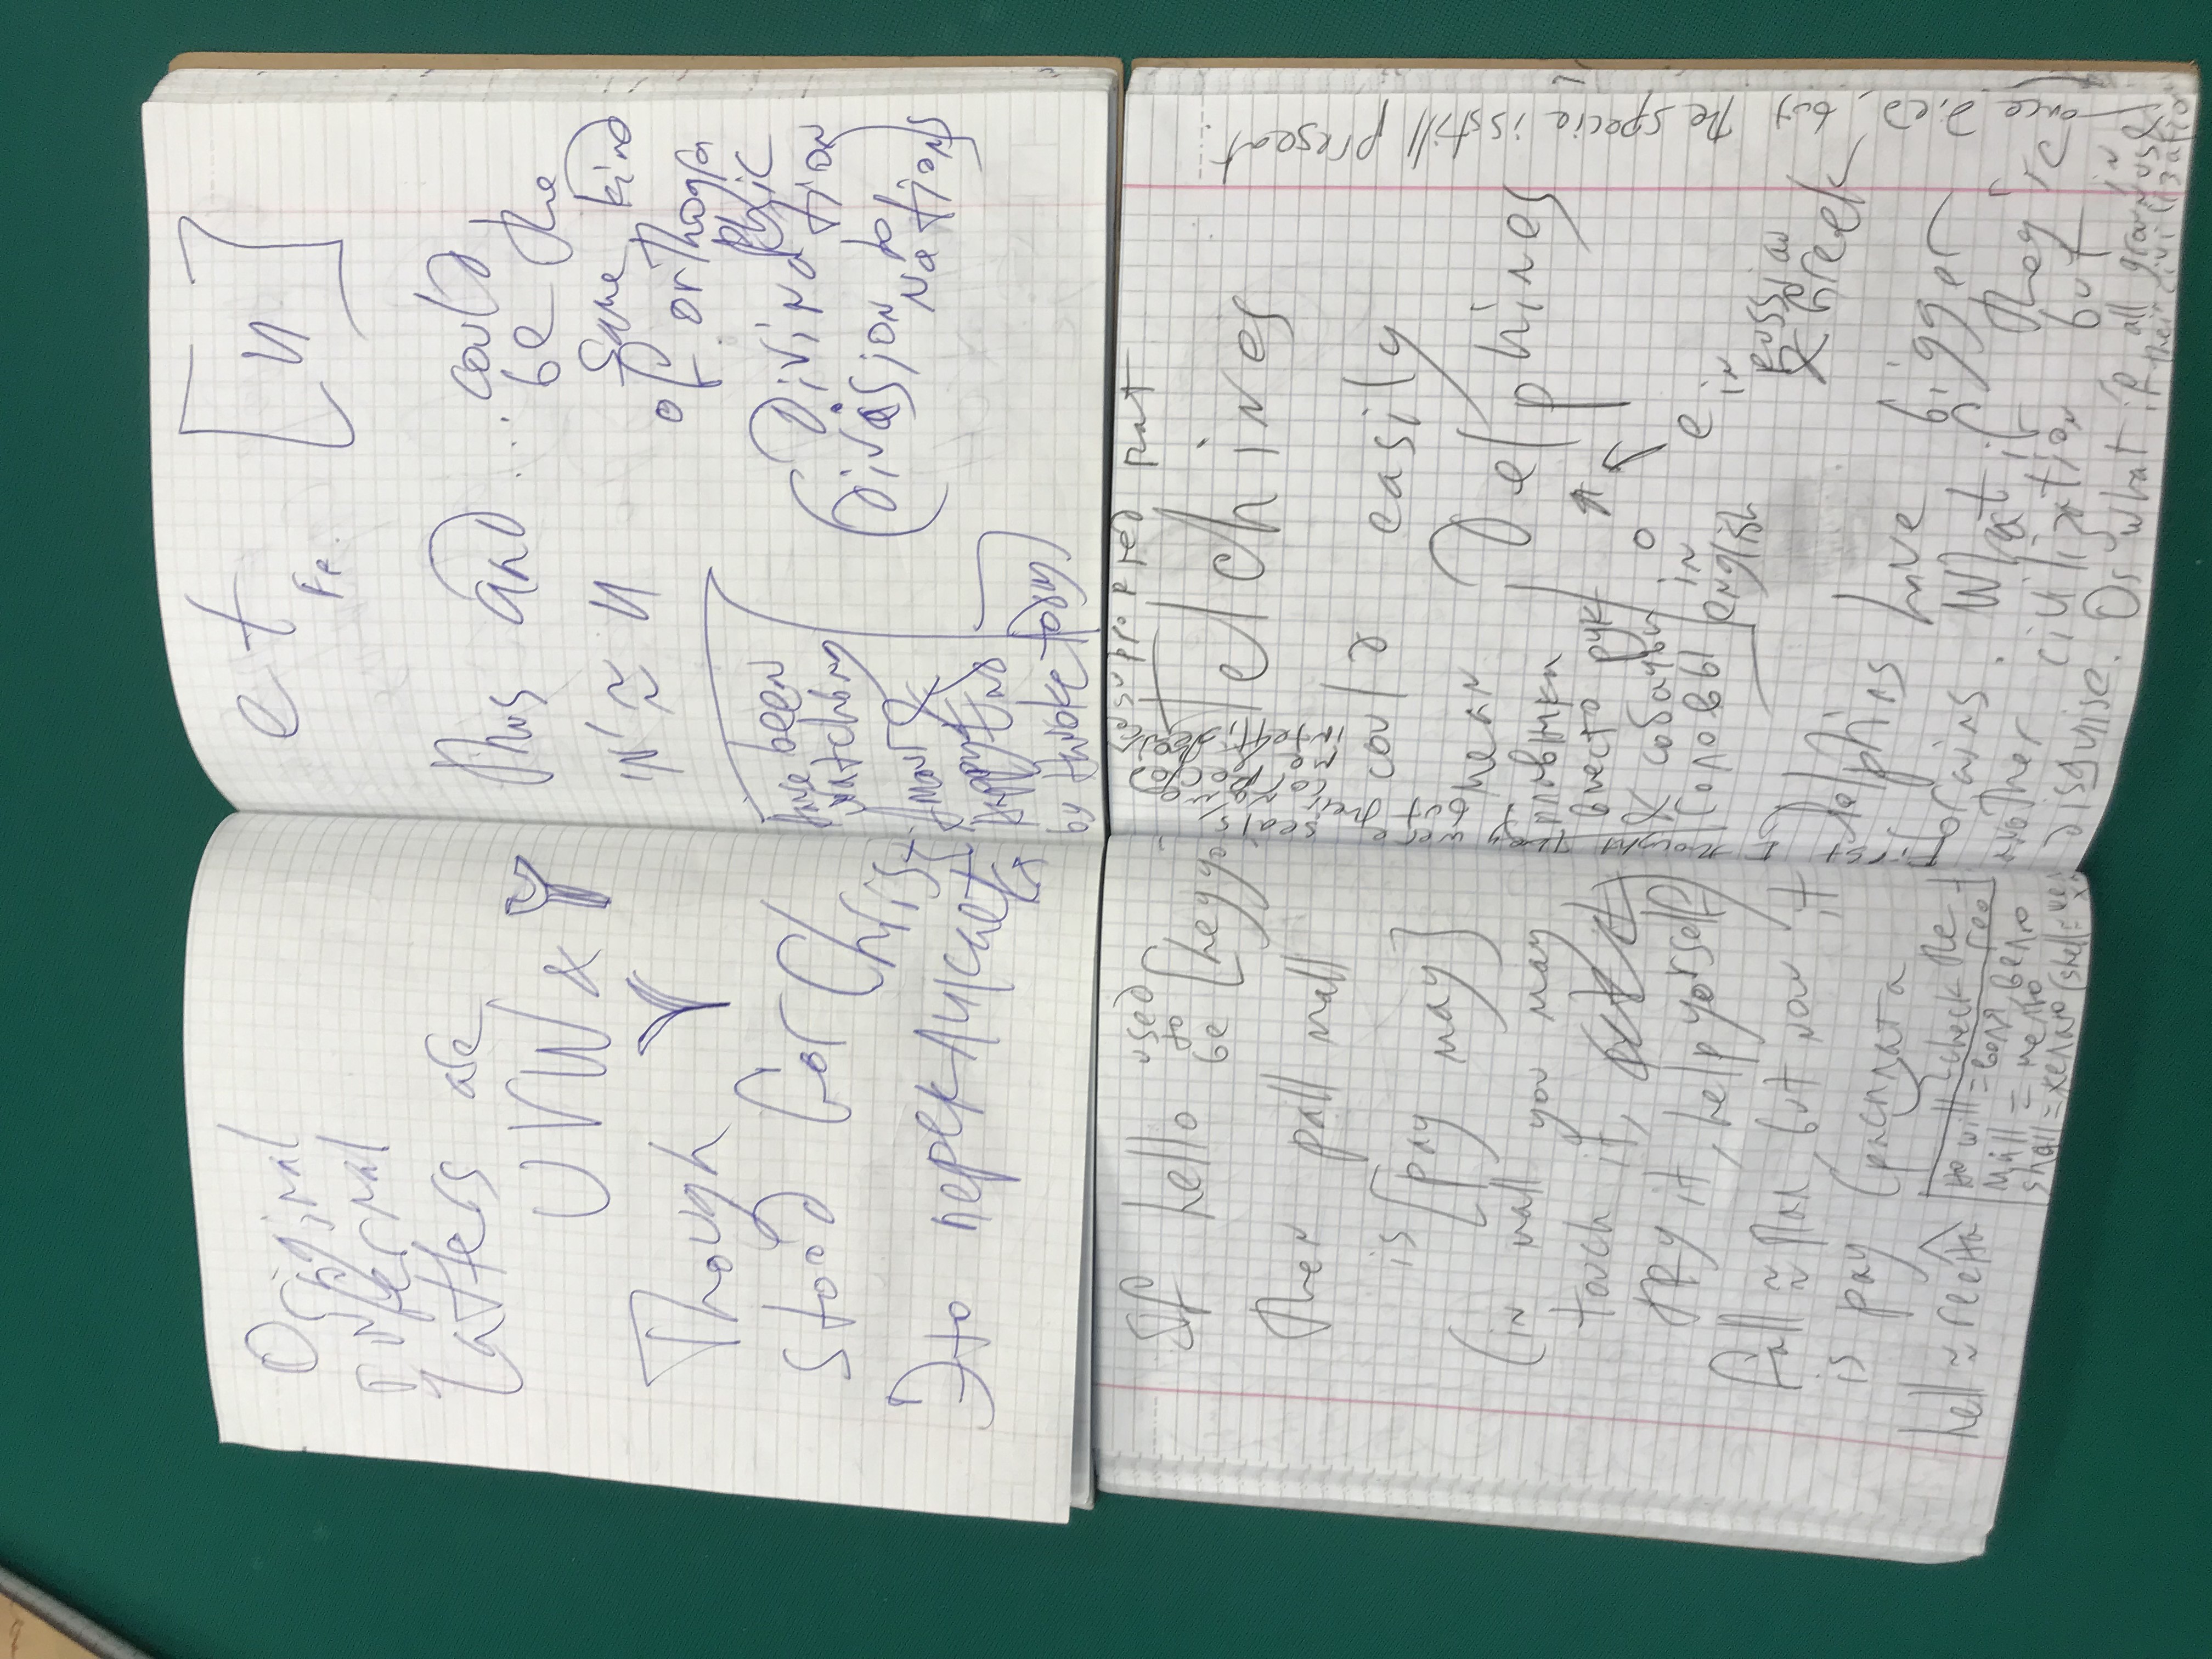 Original
infernal
Latters are
UVW & Y
Though Y
stood for Christ
Это перекликается
et [и]
Fr.
Thus and ... could
be the
same kind
of orthogra
phic
Divination
(Division to
Nations)
'N' ≈ И
Have been
watching
Amour &
Happy End
by Haneke today
If hello used
to
be [heyyo
Then pall mall
is [pay may]
(in mall you may
touch it,
try it, help yorself)
fall ≈ пал, but now it
is pay (расплата
hell ≈ геенна
check the
Но will = воля, велю
mall = мелю
shall = желаю (shell =
supported that
Telchines
could easily
mean Delphines
плавники
вместо рук
& собачьи
головы
o
in
english
e in
russian
& Greek
First I thought they were seals
but their
Dolphins have bigger
brains. What if they're
another civilization but in
disguise. Or what if all ground used
their civilization
once died, but the specie is still present.